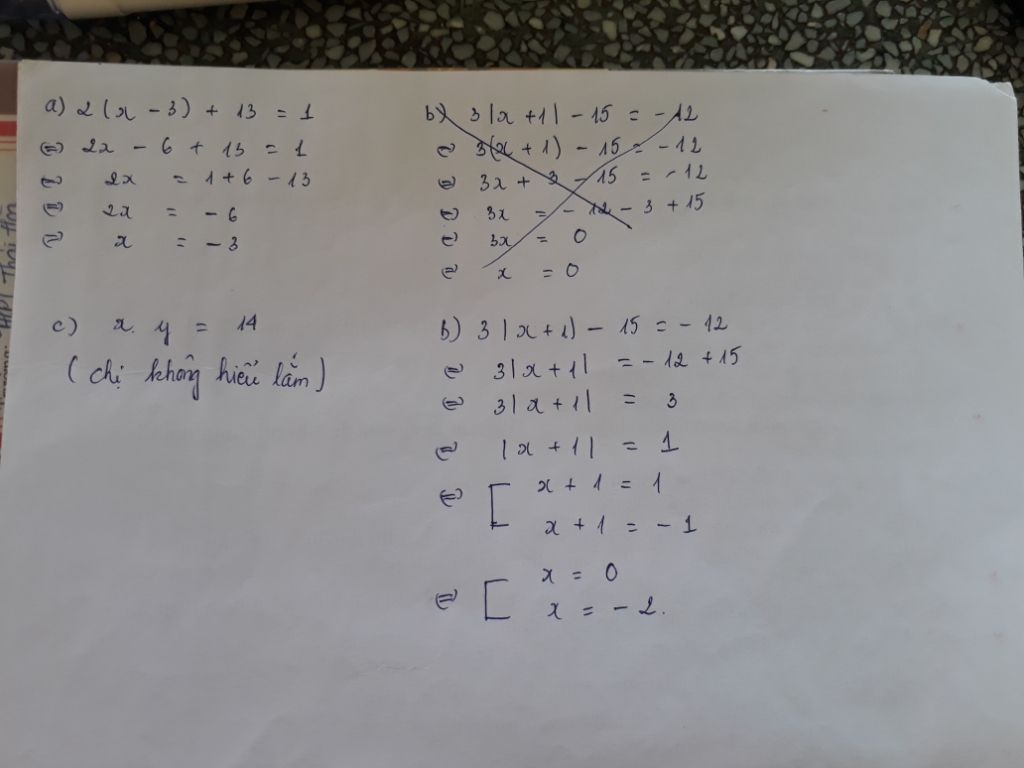 a) 2(x - 3) + 13 = 1
⇔ 2x - 6 + 13 = 1
⇔ 2x = 1 + 6 - 13
⇔ 2x = - 6
⇔ x = - 3
b) 3|x + 1| - 15 = - 12
⇔ 3(x + 1) - 15 = - 12
⇔ 3x + 3 - 15 = - 12
⇔ 3x = - 12 - 3 + 15
⇔ 3x = 0
⇔ x = 0
c) x. y = 14
(chị không hiểu lắm)
b) 3|x + 1| - 15 = - 12
⇔ 3|x + 1| = - 12 + 15
⇔ 3|x + 1| = 3
⇔ |x + 1| = 1
⇔ [ x + 1 = 1
x + 1 = - 1
⇔ [ x = 0
x = - 2.